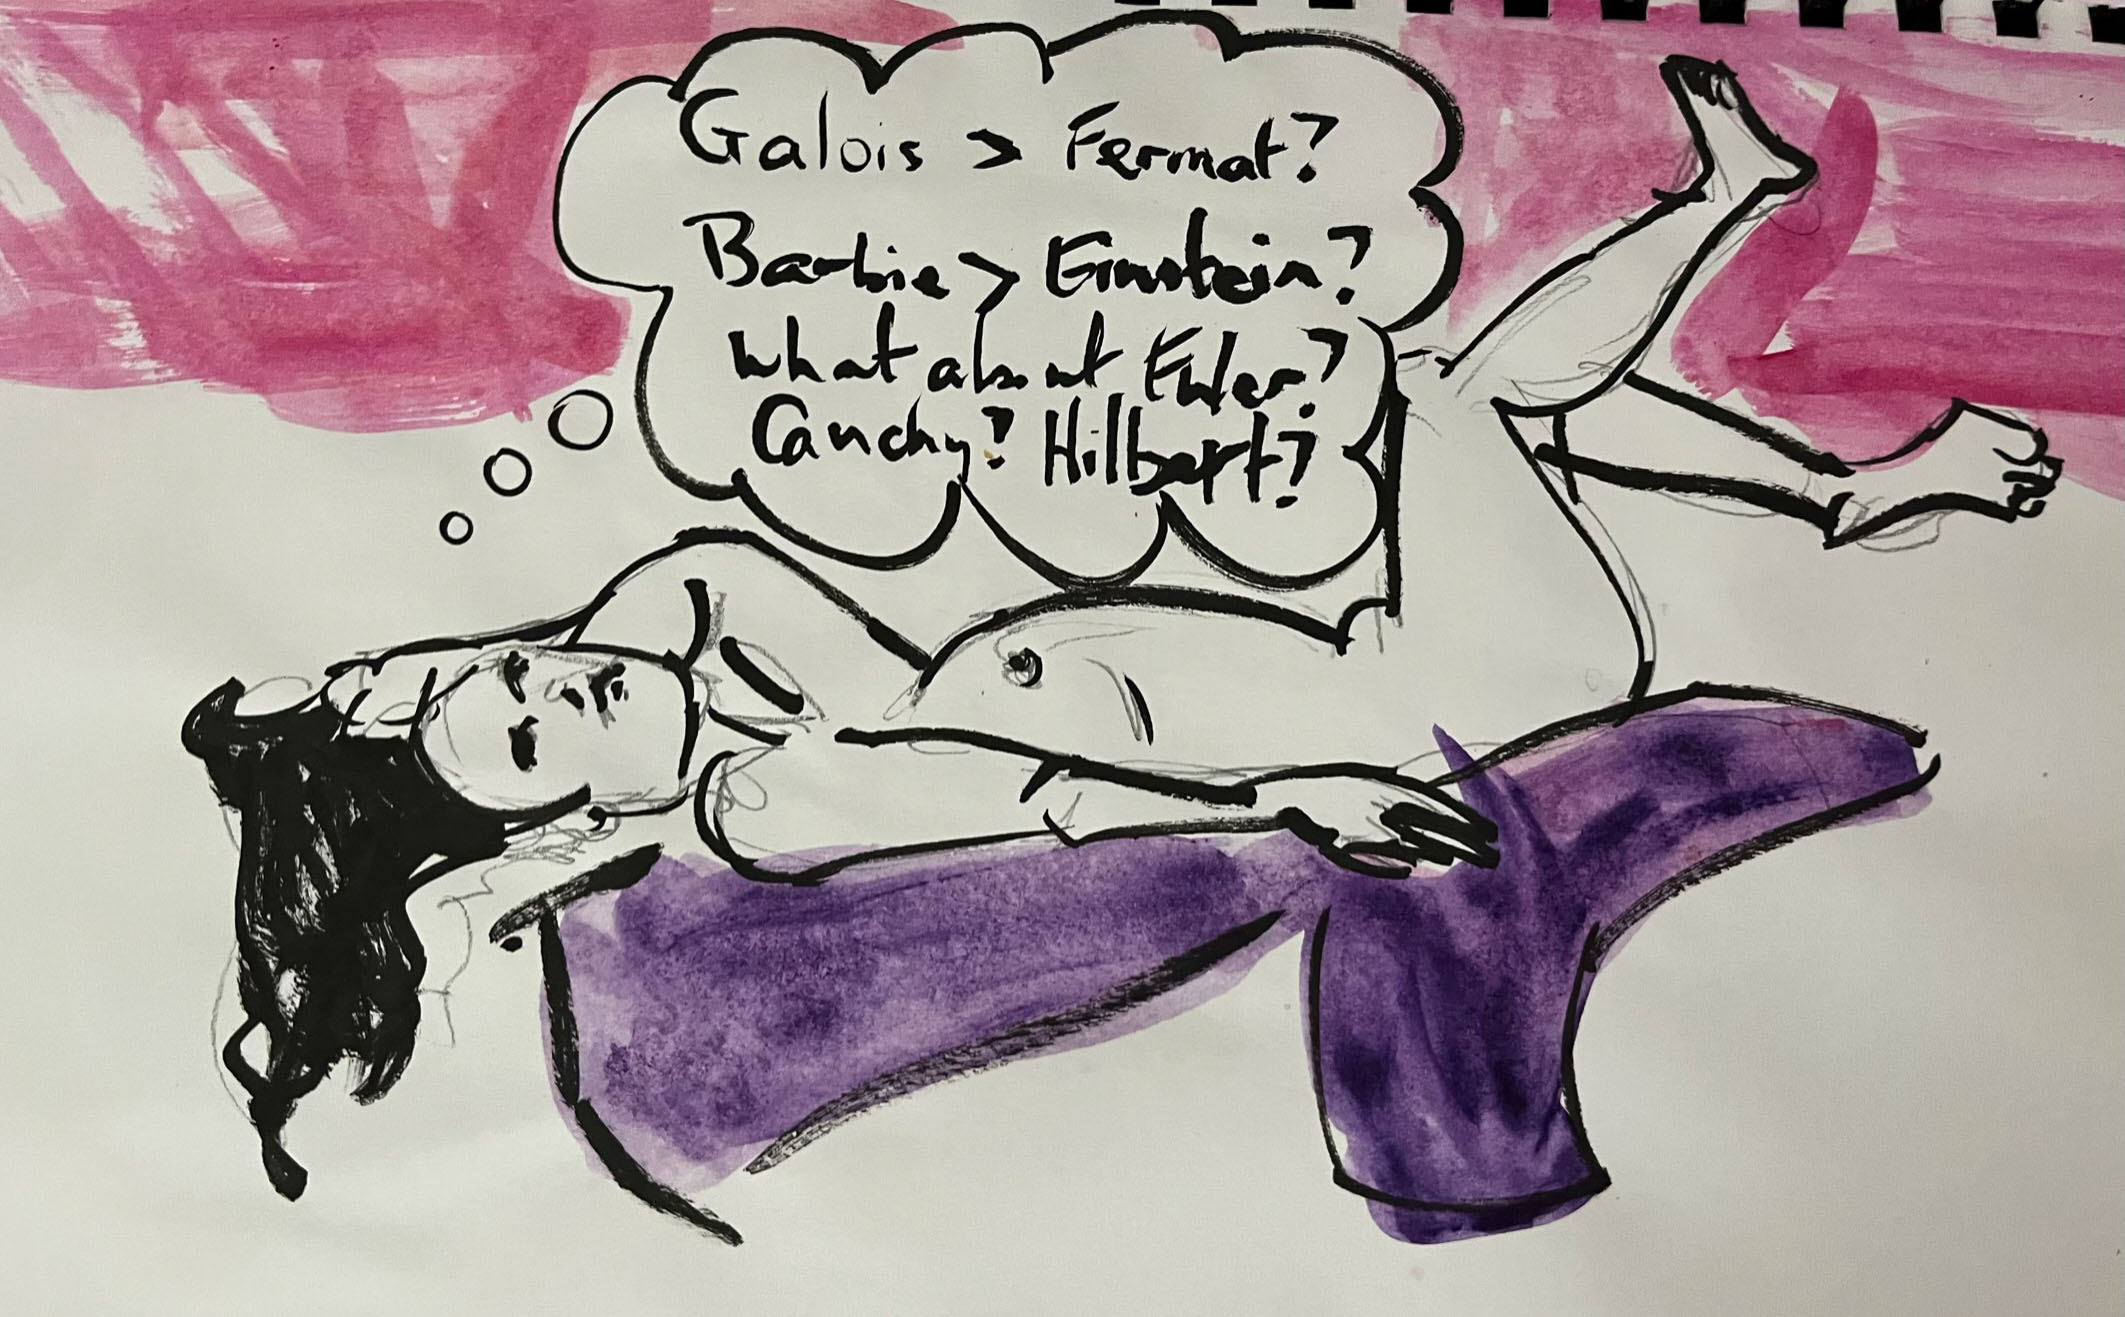 Galois > Fermat?
Barbie > Einstein?
What about Euler?
Cauchy? Hilbert?